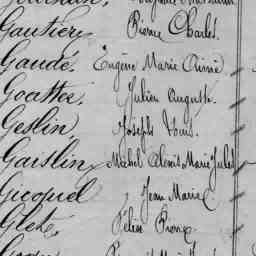 Gautier, Pierre Charles.
Gaudé, Eugène Marie Aimé
Goattee, Julien Auguste.
Geslin, Joseph Louis.
Gaislin, Michel Alexis Marie Jules
Gicquel, Jean Marie.
Gleté, Félix Pierre.